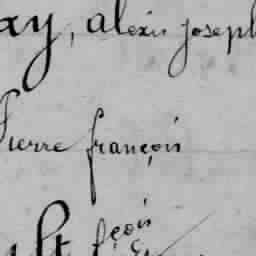 ay, alexis joseph
Pierre françois
ult fçois